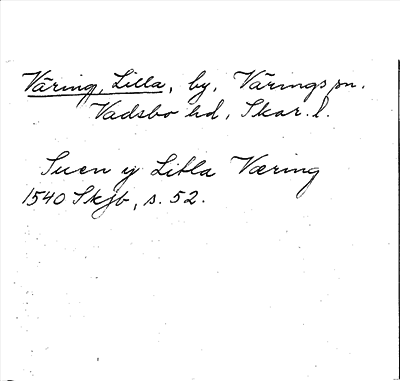 Väring, Lilla, by, Värings sn.
Vadsbo hd, Skar. l.
Suen y Litla Væring
1540 Skjb, s. 52.